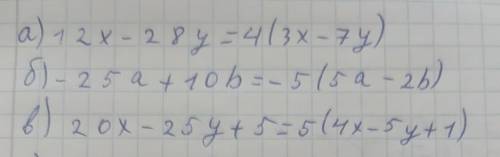 а) 12x - 28y = 4(3x - 7y)
б) - 25a + 10b = - 5(5a - 2b)
в) 20x - 25y + 5 = 5(4x - 5y + 1)